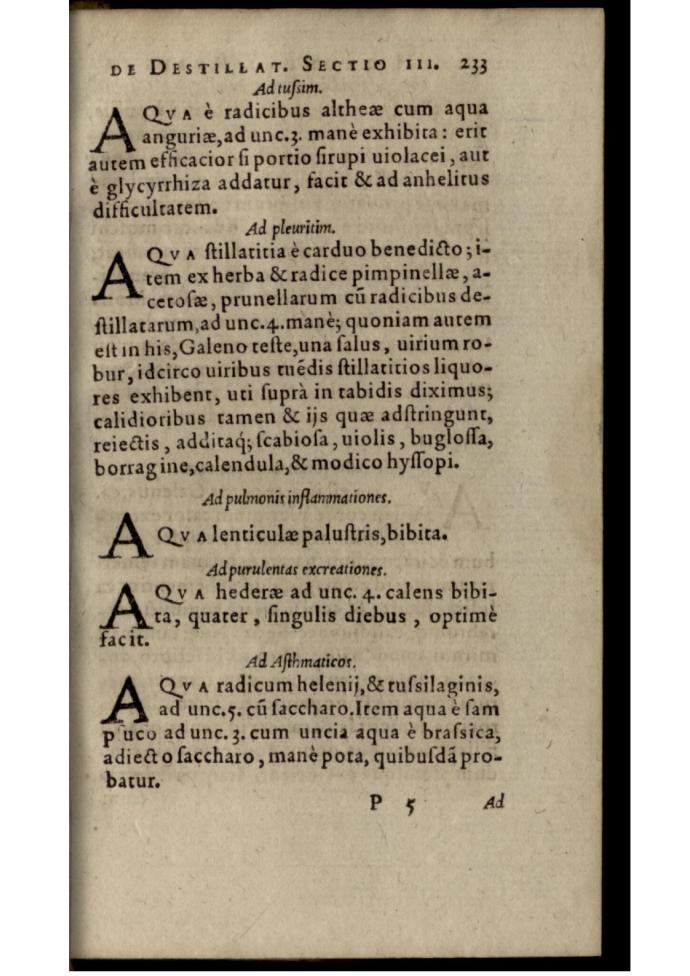 DE DESTILLAT. SECTIO III. 233
Ad tuſsim.
AQVA è radicibus altheæ cum aqua
anguriæ, ad unc.3. manè exhibita: erit
autem efficacior ſi portio ſirupi uiolacei, aut
è glycyrrhiza addatur, facit & ad anhelitus
difficultatem.
Ad pleuritim.
AQVA ſtillatitia è carduo benedicto; i-
tem ex herba & radice pimpinellæ, a-
cetoſæ, prunellarum cũ radicibus de-
ſtillatarum, ad unc.4. manè; quoniam autem
eſt in his, Galeno teſte, una ſalus, uirium ro-
bur, idcirco uiribus tuẽdis ſtillatitios liquo-
res exhibent, uti ſuprà in tabidis diximus;
calidioribus tamen & ijs quæ adſtringunt,
reiectis, additaq́; ſcabioſa, uiolis, bugloſſa,
borragine, calendula, & modico hyſſopi.
Ad pulmonis inflammationes.
AQVA lenticulæ paluſtris, bibita.
Ad purulentas excreationes.
AQVA hederæ ad unc. 4. calens bibi-
ta, quater, ſingulis diebus, optimè
facit.
Ad Aſthmaticos.
AQVA radicum helenij, & tuſsilaginis,
ad unc.5. cũ ſaccharo. Item aqua è ſam
p uco ad unc. 3. cum uncia aqua è braſsica,
adiecto ſaccharo, manè pota, quibuſdã pro-
batur.
P 5 Ad